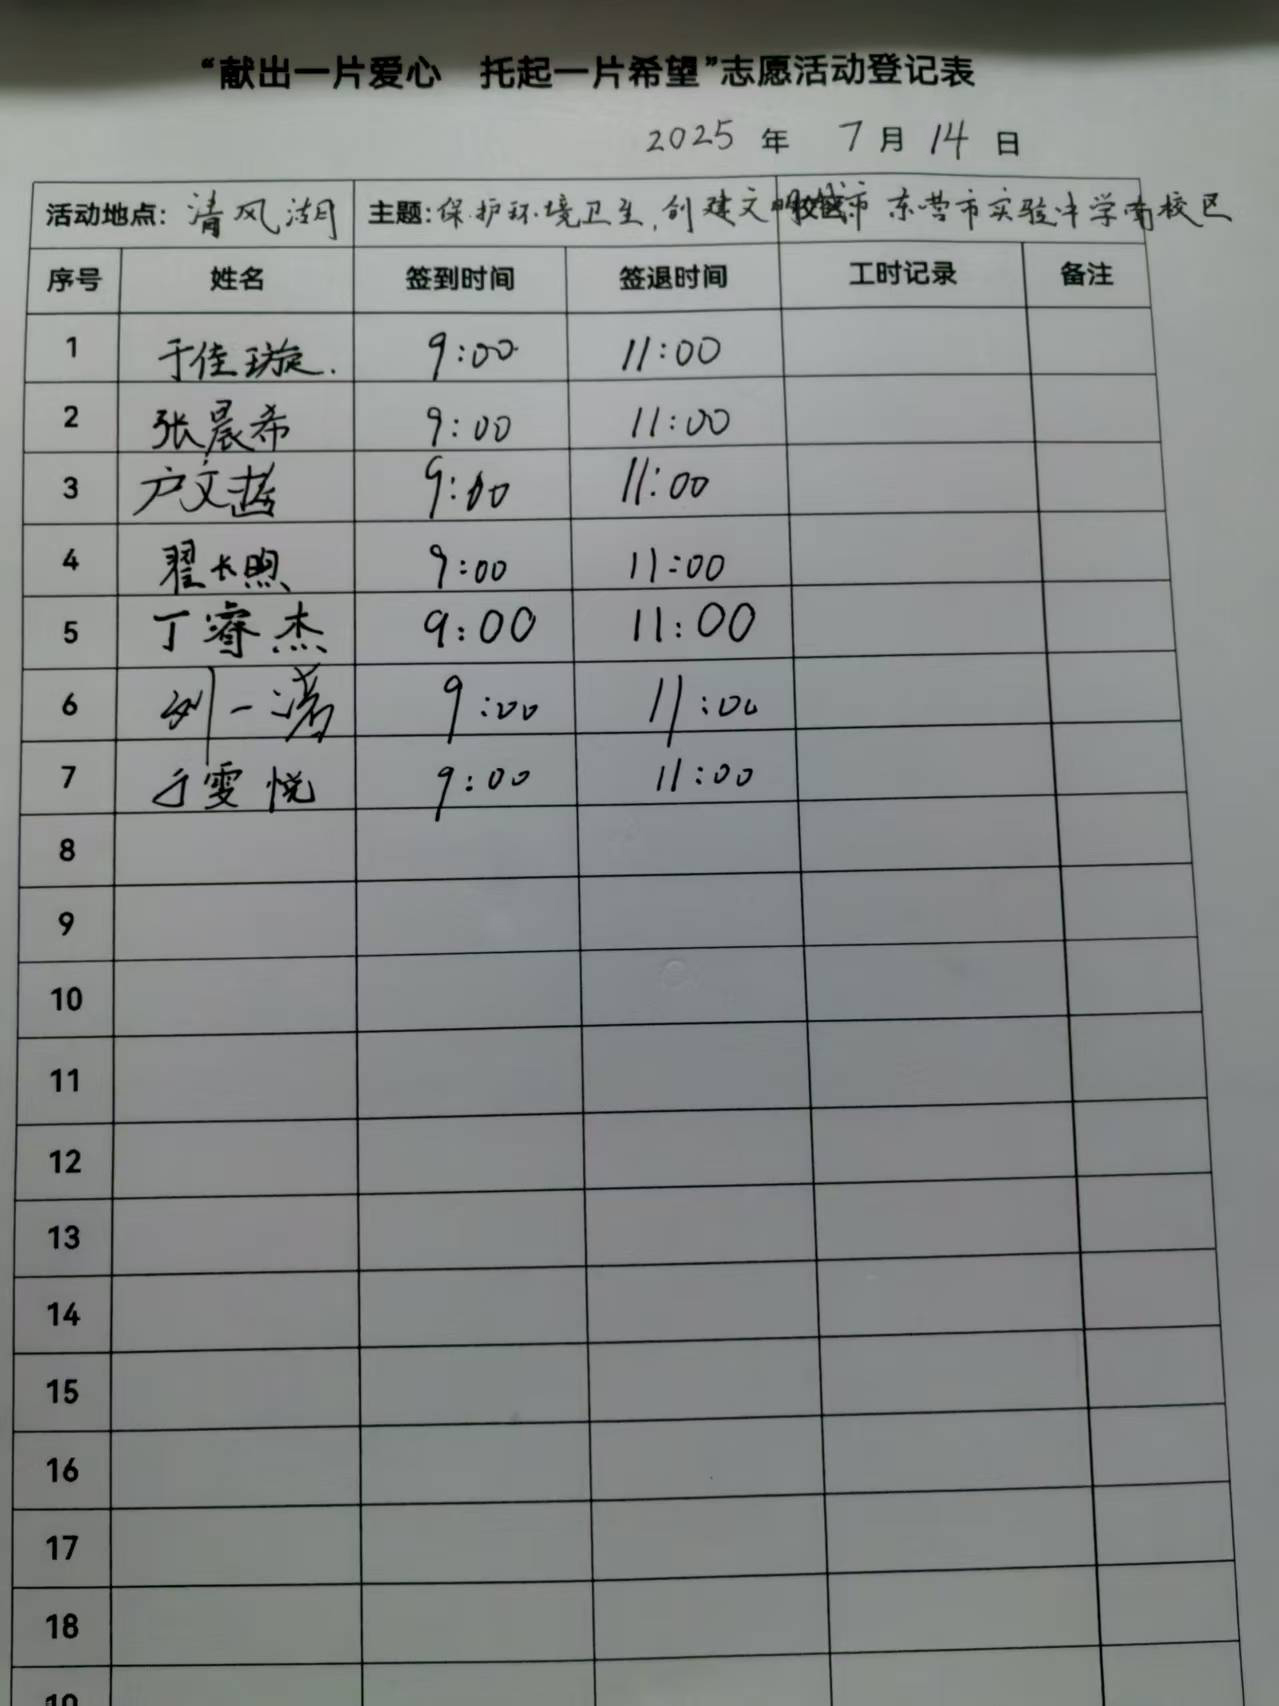 “献出一片爱心 托起一片希望”志愿活动登记表
2025 年 7 月 14 日
活动地点: 清风湖 主题: 保护环境卫生,创建文明城市 东营市实验中学南校区
序号 姓名 签到时间 签退时间 工时记录 备注
1 于佳璇. 9:00 11:00
2 张晨希 9:00 11:00
3 卢文喆 9:00 11:00
4 翟长煦 9:00 11:00
5 丁睿杰 9:00 11:00
6 刘一诺 9:00 11:00
7 于雯悦 9:00 11:00
8
9
10
11
12
13
14
15
16
17
18